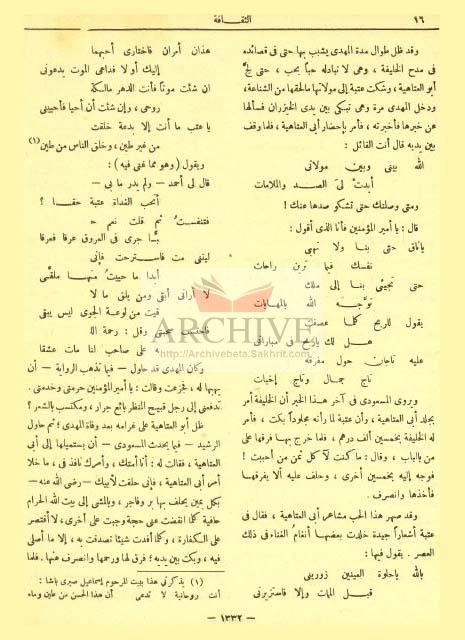 ١٦
الثقافة
وقد ظل طوال مدة المهدى يشبب بها حتى فى قصائده
فى مدح الخليفة ، وهى لا تبادله حبا بحب ، حتى لج
أبو العتاهية ، وشكت عتبة إلى مولاتها مالحقها من الشناعة،
ودخل المهدى مرة وهى تبكى بين يدى الخيزران فسألها
عن خبرها فأخبرته ، فأمر بإحضار أبى العتاهية ، فلما وقف
بين يديه قال أنت القائل :
الله بينى وبين مولاتى
أبدت لى الصد والملامات
ومتى وصلتك حتى تشكو صدها عنك !
قال : يا أمير المؤمنين فأنا الذى أقول :
ياناق حتى بنا ولا تهى
نفسك فيما ترين راحات
حتى تجيئى بنا إلى ملك
توجه الله بالمهابات
يقول للريح كلما عصفت
هل لك ياريح فى مباراتى
عليه تاجان حول مفرقه
تاج جمال وتاج إخبات
ويروى المسعودى فى آخر هذا الخبر أن الخليفة أمر
بجلد أبى العتاهية ، وأن عتبة لما رأته مجلودا بكت ، فأمر
له الخليفة بخمسين ألف درهم ، فلما خرج بها فرقها على
من بالباب ، وقال : ما كنت لآكل ثمن من أحببت !
فوجه إليه بخمسين أخرى ، وحلف عليه ألا يفرقها
فأخذها وانصرف .
وقد صهر هذا الحب مشاعر أبى العتاهية ، فقال فى
عتبة أشعارا جيدة خلدت بعضها أنغام الغناء فى ذلك
العصر . يقول فيها :
بالله ياحلوة العينين زورينى
قبل الممات وإلا فاستزيرينى
هذان أمران فاختارى أحبهما
إليك أو لا فداعى الموت يدعونى
إن شئت موتا فأنت الدهر مالكة
روحى ، وإن شئت أن أحيا فأحيينى
يا عتب ما أنت إلا بدعة خلقت
من غير طين ، وخلق الناس من طين (١)
ويقول ( وهو مما غنى فيه ) :
قال لى أحمد — ولم يدر ما بى —
أتحب الغداة عتبة حقا ؟
فتنفست ثم قلت نعم
با جرى فى العروق عرقا فعرقا
ليتنى مت فاسترحت فإنى
أبدا ما حييت منها ملقى
لا أرانى أبقى ومن يلق ما لا
قيت من لوعة الجوى ليس يبقى
فاحتسب صحبتى وقل : رحمة الله
على صاحب لنا مات عشقا
وكان المهدى قد حاول — فيما تذهب الرواية — أن
يهبها له ، فجزعت وقالت : يا أمير المؤمنين حرمتى وخدمتى .
تدفعنى إلى رجل قبيح المنظر بائع جرار ، ومكتسب بالشعر ؟
ظل أبو العتاهية على غرامه بعد وفاة المهدى ؛ ثم حاول
الرشيد — فيما يحدث المسعودى — أن يستميلها إلى أبى
العتاهية ، فقالت له : أنا أمتك ، وأمرك نافذ فى ، ما خلا
أمر أبى العتاهية ، فإنى حلفت لأبيك — رضى الله عنه —
بكل يمين يحلف بها بر وفاجر ، وبالمشى إلى بيت الله الحرام
حافية كلما انقضت عنى حجة وجبت على أخرى، لا أقتصر
على الكفارة ، وكلما أفدت شيئا تصدقت به ، إلا ما أصلى
فيه ، وبكت بين يديه ؛ فرق لها ورحمها وانصرف عنها . فلما
(١) يذكرنى هذا ببيت للمرحوم إسماعيل صبرى باشا :
أنت روحانية لا تدعى أن هذا الحسن من طين وماء
— ١٣٣٢ —
ARCHIVE
http://Archivebeta.Sakhrit.com